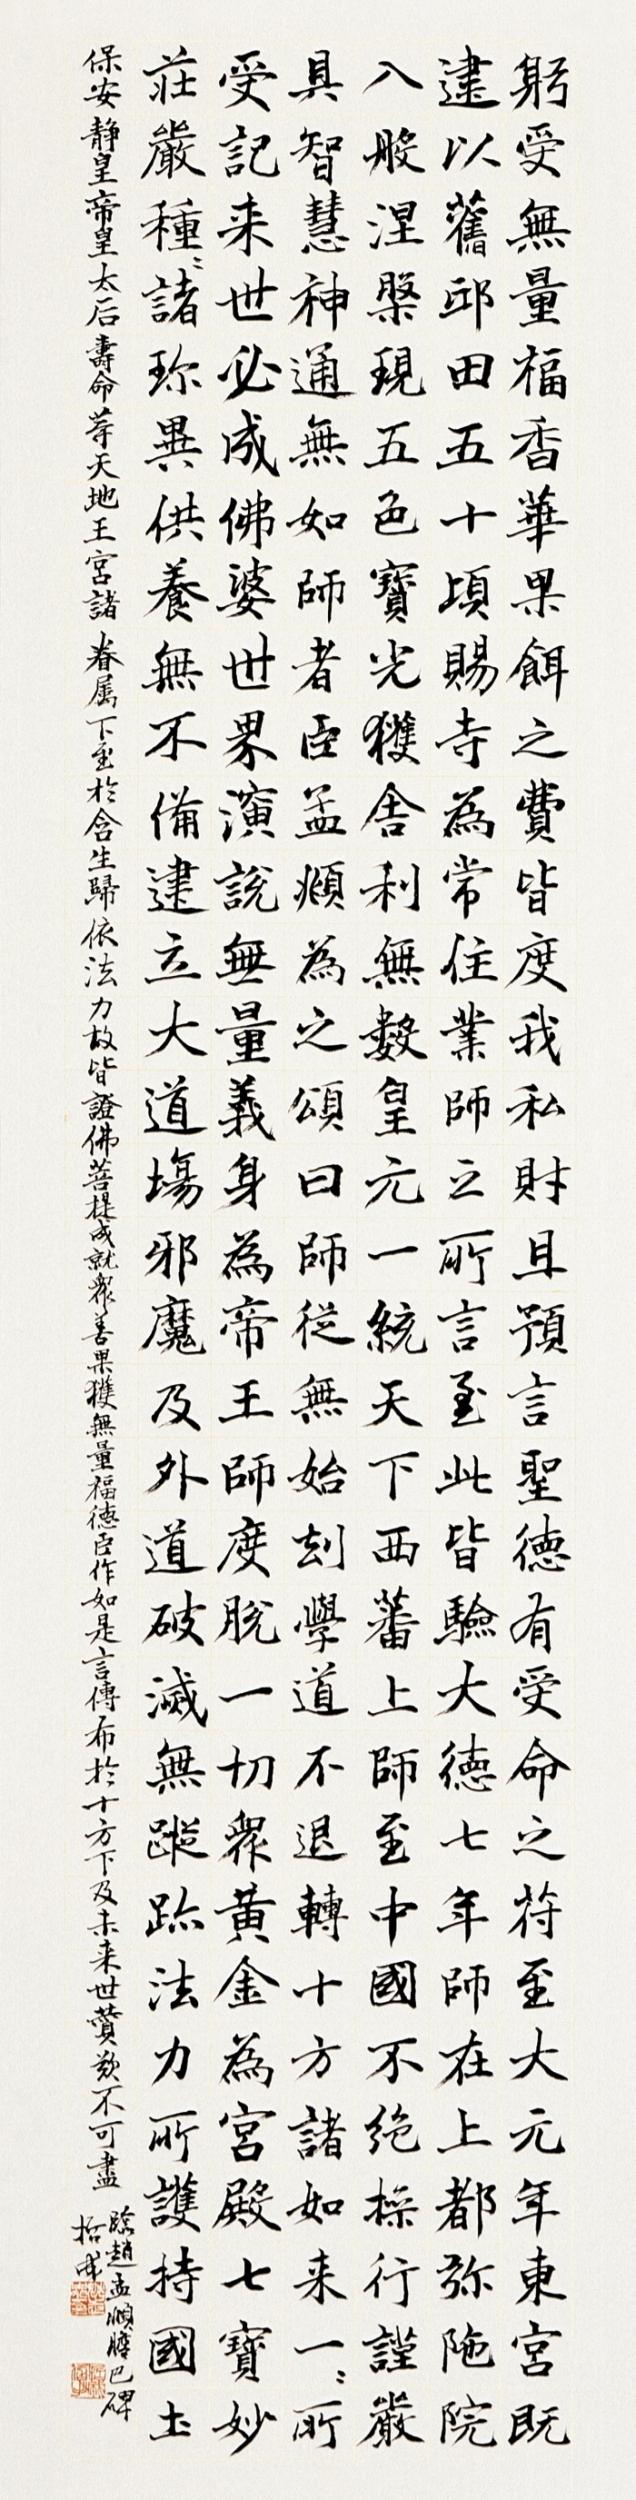 躬受無量福香華果餌之費皆度我私財且預言聖德有受命之符至大元年東宮既
建以舊邸田五十頃賜寺為常住業師之所言至此皆驗大德七年師在上都弥陁院
入般涅槃現五色寶光獲舍利無數皇元一統天下西蕃上師至中國不絕操行謹嚴
具智慧神通無如師者臣孟頫為之頌曰師從無始劫學道不退轉十方諸如来一〻所
受記来世必成佛婆世界演說無量義身為帝王師度脫一切眾黃金為宮殿七寶妙
莊嚴種〻諸珎異供養無不備建立大道場邪魔及外道破滅無蹤跡法力所護持國土
保安静皇帝皇太后壽命等天地王宮諸眷属下至於含生歸依法力故皆證佛菩提成就眾善果獲無量福德臣作如是言傳布於十方下及未来世贊歎不可盡
臨趙孟頫膽巴碑